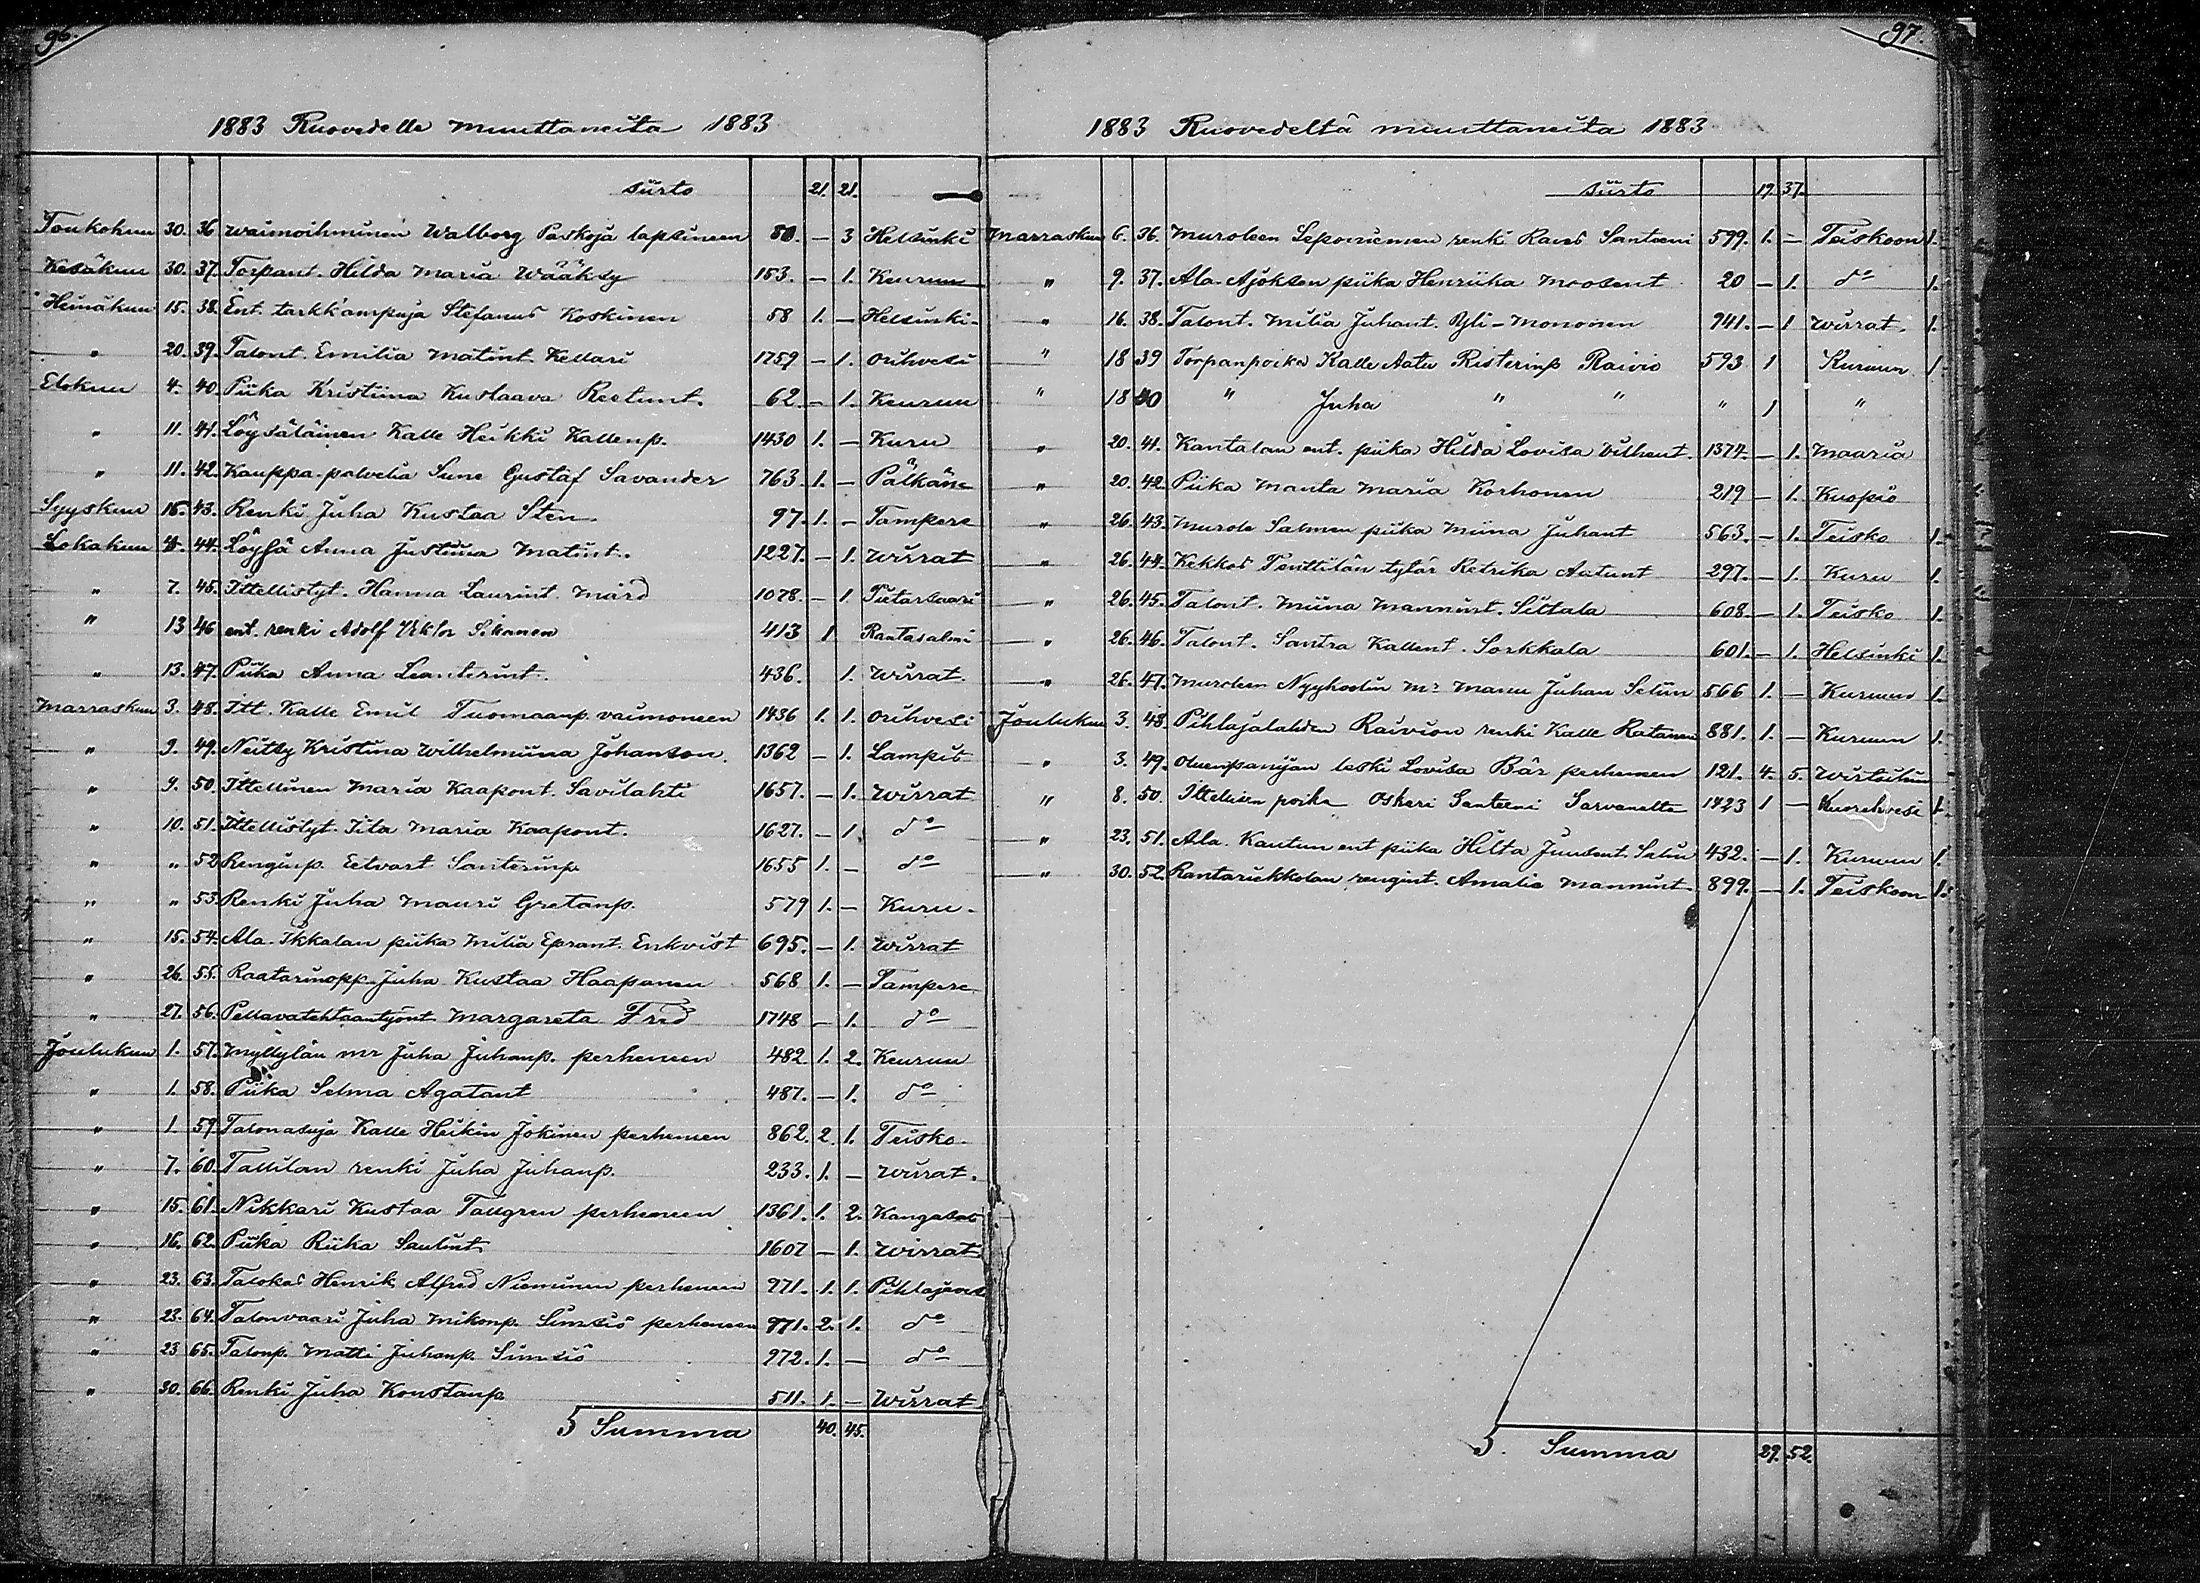 96.
1883 Ruovedelle muuttaneita 1883
siirto 21. 21.
Toukokuu 30. 36 waimoihminen Walborg Paskoja lapsineen 50. — 3 Helsinki
Kesäkuu 30. 37. Torpant. Hilda Maria Wääksy 153. — 1. Keuruu
Heinäkuu 15. 38. Ent. tarkk'ampuja Stefanus Koskinen 58 1. — Helsinki
" 20. 39. Talont. Emilia Matint. Kellari 1759 — 1. Orihvesi
Elokuu 4. 40. Piika Kristiina Kustaava Reetunt. 62. — 1. Keuruu
" 11. 41. Löysäläinen Kalle Heikki Kallenp. 1430 1. — Kuru
" 11. 42. Kauppa-palvelia Sune Gustaf Savander 763. 1. — Pälkäne
Syyskuu 15. 43. Renki Juha Kustaa Sten 97. 1. — Tampere
Lokakuu 4. 44. Löysä Anna Justiina Matint. 1227. — 1. Wirrat
" 7. 45. Ittellistyt. Hanna Laurint. Märd 1078. — 1. Pietarsaari
" 13 46 ent. renki Adolf Viktor Sikanen 413 1 Rantasalmi
" 13. 47. Piika Anna Leanterint. 436. 1. Wirrat.
Marraskuu 3. 48. Itt. Kalle Emil Tuomaanp. vaimoneen 1436 1. 1. Orihvesi
" 9. 49. Neitsy Kristina Wilhelmiina Johanson. 1362 — 1. Lampis
" 9. 50. Ittellinen Maria Kaapont. Savilahti 1657. — 1. Wirrat
" 10. 51. Ittellistyt. Iita Maria Kaapont. 1627. — 1. do
" " 52 Renginp. Eetvart Santerinp. 1655 1. — do
" " 53. Renki Juha Mauri Gretanp. 579 1. — Kuru.
" 15. 54. Ala-Ikkalan piika Milia Eprant. Enkvist 695. — 1. Wirrat
" 26. 55. Raatarinopp. Juha Kustaa Haapanen 568 1. — Tampere
" 27. 56. Pellavatehtaantyönt. Margareta Fred 1748 — 1. do
Joulukuu 1. 57. Myllylän mr Juha Juhanp. perheneen 482 1. 2. Keuruu
" 1. 58. Piika Selma Agatant 487. — 1. do
" 1. 59. Talonasuja Kalle Heikin Jokinen perheneen 862. 2. 1. Teisko.
" 7. 60. Tallilan renki Juha Juhanp. 233. 1. — Wirrat.
" 15. 61. Nikkari Kustaa Tallgren perheneen 1361. 1. 2. Kangasas
" 16. 62. Piika Riika Saulint. 1607 — 1. Wirrat
" 23. 63. Talokas Henrik Alfred Nieminen perheneen 971. 1. 1. Pihlajaves
" 23. 64. Talonvaari Juha Mikonp. Simsiö perheneen 971. 2. 1. do
" 23 65. Talonp. Matti Juhanp. Simsiö 972. 1. — do
" 30. 66. Renki Juha Konstanp. 511. 1. — Wirrat
S Summa 40. 45.
97.
1883 Ruovedeltä muuttaneita 1883
siirto 19. 37.
Marraskuu 6. 36. Muroleen Seponiemen renki Santeeni 599. 1. — Teiskoon 1.
" 9. 37. Ala-Ajoksen piika Henriika Moosent 20 — 1. do 1.
" 16. 38. Talont. Milia Juhant. Yli-Mononen 941. — 1 Wirrat. 1.
" 18 39 Torpanpoika Kalle Aatu Risterinp Raivio 593 1 Kuruun 1
" 18 40 " Juha " " " 1 "
" 20. 41. Kantalan ent. piika Hilda Lovisa Vilhent. 1374. — 1. Maaria
" 20. 42. Piika Manta Maria Korhonen 219 — 1. Kuopio
" 26. 43. Murole Salmen piika Miina Juhant 563. — 1. Teisko 1.
" 26. 44. Kekkos Penttilän tytär Retrika Aatunt 297. — 1. Kuru 1.
" 26. 45. Talont. Miina Mannint. Siltala 608. — 1. Teisko 1.
" 26. 46. Talont. Santra Kallent. Sorkkala 601. — 1. Helsinki 1.
" 26. 47. Muroleen mr Manu Juhan Selin 566 1. — Kuruun 1.
Joulukuu 3. 48. Pihlajalahden Raivion renki Kalle Ratanen 881. 1. — Kuruun 1.
" 3. 49. Oluenpanijan leski Lovisa Bär perheneen 121. 4. 5. Wirtsihin
" 8. 50. Ittelisen poika Oskari Santeeni Sarvanelta 1423 1 — Kuorehvesi 1.
" 23. 51. Ala. Kautun ent piika Hilta Juusent. Salin 432. — 1. Kuruun 1.
" 30. 52. Rantariekkolan rengint. Amalia Mannint. 899. — 1. Teiskoon 1.
S. Summa 29. 52.